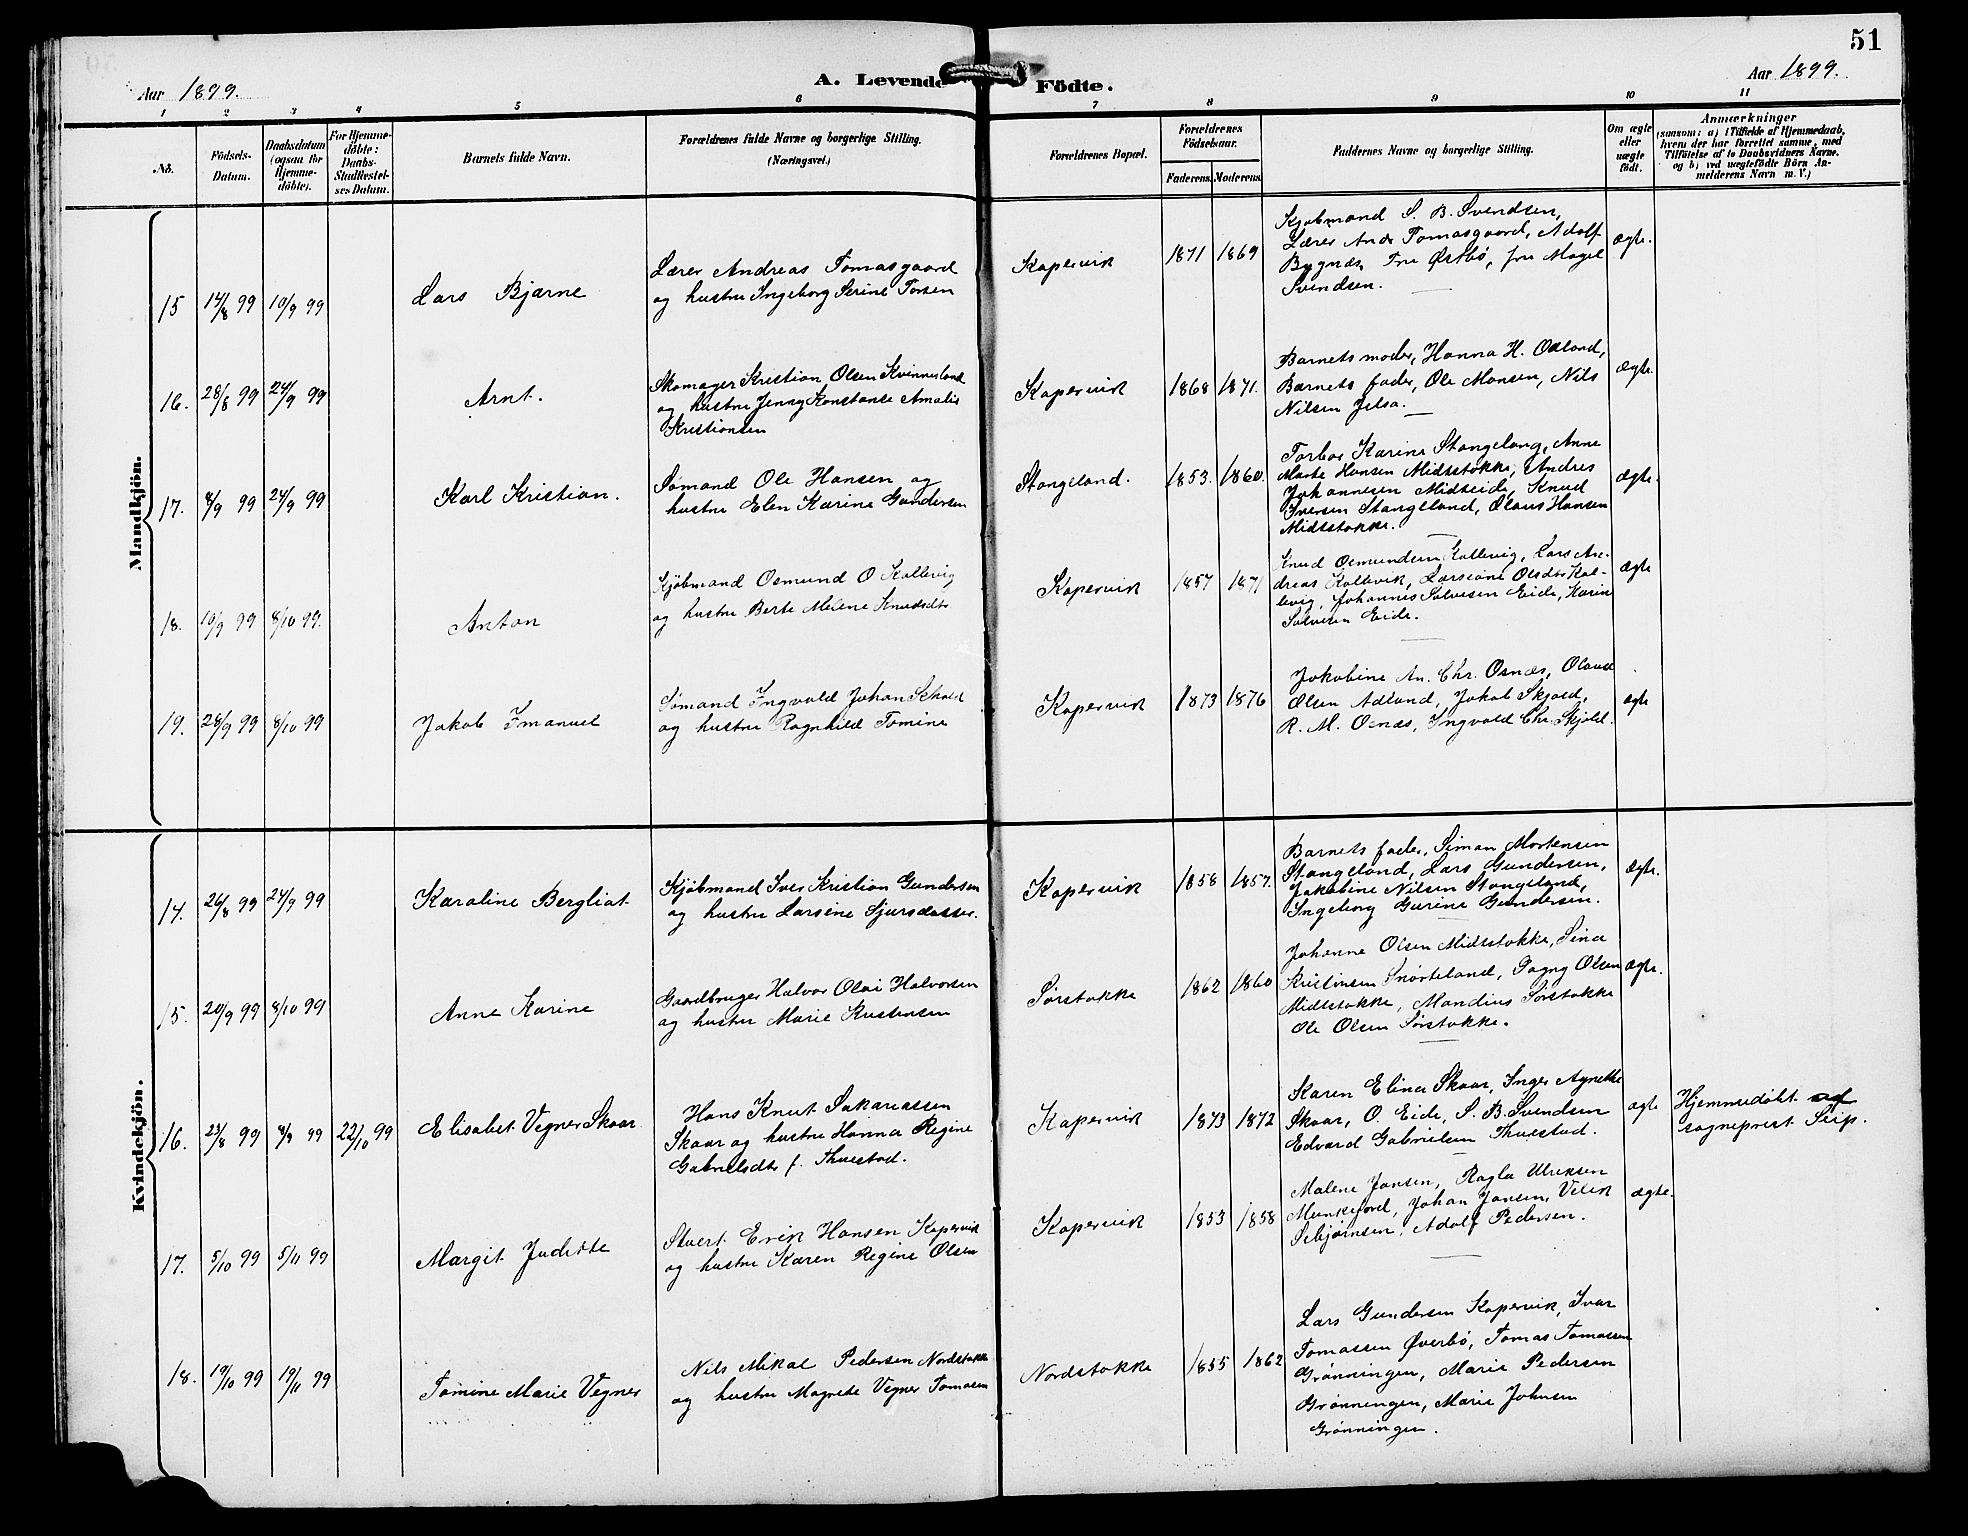 51
Aar 1899.
A. Levende Födte.
Aar 1899.
1 2 3 4 5 6 7 8 9 10 11
No.
Födsels-
Datum.
Daabsdatum
(ogsaa for
Hjemme-
döbte).
For Hjemme-
döbte:
Daabs-
Stadfæstel-
ses Datum.
Barnets fulde Navn.
Forældrenes fulde Navne og borgerlige Stilling.
(Næringsvei.)
Forældrenes Bopæl.
Forældrenes
Födselsaar.
Faderens. Moderens.
Faddernes Navne og borgerlige Stilling.
Om ægte
eller
uægte
født.
Anmærkninger
(saasom: a) i Tilfælde af Hjemmedaab,
hvem der har forrettet samme, med
Tilföielse af to Daabsvidners Navne.
og b) ved uægtefödte Börn An-
melderens Navn m. V.)
Mandkjön.
15 14/8 99 10/9 99
Lars Bjarne
Lærer Andreas Tomasgaard
og hustru Ingeborg Serine Torsen
Kopervik
1871 1869
Kjøbmand S. B. Svendsen,
Lærer Andr Tomasgaard, Adolf
Bygnes, Fru Østbø, fru Magel
Svendsen.
ægte.
16. 28/8 99 24/9 99
Arnt.
Skomager Kristian Olsen Kvinnesland
og hustru Jenny Konstanse Amalie
Kristiansen
Kopervik
1868 1871.
Barnets moder, Hanna H. Odland,
Barnets fader, Ole Monsen, Nils
Nilsen Jelsa.
ægte.
17. 8/9 99 24/9 99
Karl Kristian.
Sømand Ole Hansen og
hustru Elen Karine Gundersen
Stangeland.
1853. 1860.
Torbor Karine Stangelang, Anne
Marte Hansen Midtstokke, Andres
Johannesen Midteide, Knud
Iversen Stangeland, Olaus Hansen
Midtstokke.
ægte.
18. 10/9 99 8/10 99.
Anton
Kjøbmand Osmund O Kallevig
og hustru Berte Melene Knudsdtr
Kopervik
1857 1871
Knud Osmundsen Kallevig, Lars An-
dreas Kallevik, Larsine Olsdtr Kal-
levig, Johannes Salvesen Eide, Karin
Salvesen Eide.
ægte
19. 28/9 99 8/10 99
Jakob Imanuel
Sømand Ingvald Johan Schold
og hustru Ragnhild Tomine
Kopervik
1873 1876
Jakobine An. Chr. Osnes, Olaud
Olsen Adland, Jakob Skjold,
R. M. Osnes, Ingvald Chr. Skjold.
ægte
Kvindekjön.
14. 26/8 99 24/9 99
Karoline Bergliot
Kjøbmand Iver Kristian Gundersen
og hustru Larsine Sjursdatter.
Kopervik
1858 1857.
Barnets fader, Simon Mortensen
Stangeland, Lars Gundersen,
Jakobine Nilsen Stangeland,
Ingeborg Gurine Gundersen.
ægte.
15. 20/9 99 8/10 99
Anne Karine
Gaardbruger Halvor Olai Halvorsen
og hustru Marie Kristensen
Sørstokke
1862 1860
Johanne Olsen Midtstokke, Sina
Kristensen Snørteland, Dagny Olsen
Midtstokke, Mandius Sørstokke
Ole Olsen Sørstokke.
ægte.
16. 23/8 99 8/9 99 22/10 99
Elisabet Vegner Skaar
Hans Knut Sakariassen
Skaar og hustru Hanna Regine
Gabrielsdtr f. Thuestad.
Kopervik
1873 1872
Karen Elina Skaar, Inger Agnethe
Skaar, O. Eide, S. B. Svendsen
Edvard Gabrielsen Thuestad.
ægte
Hjemmedøbt af
sogneprest Seip.
17. 5/10 99 5/11 99
Margit Juditte
Stuert Erik Hansen Kopervik
og hustru Karen Regine Olsen
Kopervik
1853 1858
Malene Jansen, Ragla Ulriksen
Munkejord, Johan Jansen,
Sebjørnsen, Adolf Pedersen.
ægte.
18. 19/10 99 19/11 99
Tomine Marie Vegner
Nils Mikal Pedersen Nordstokke
og hustru Magrete Vegner Tomasen
Nordstokke
1855 1862
Lars Gundersen Kopervik, Ivar
Tomassen Øverbø, Tomas Tomassen
Grønningen, Marie Pedersen
Grønningen, Marie Johnsen
Grønningen.